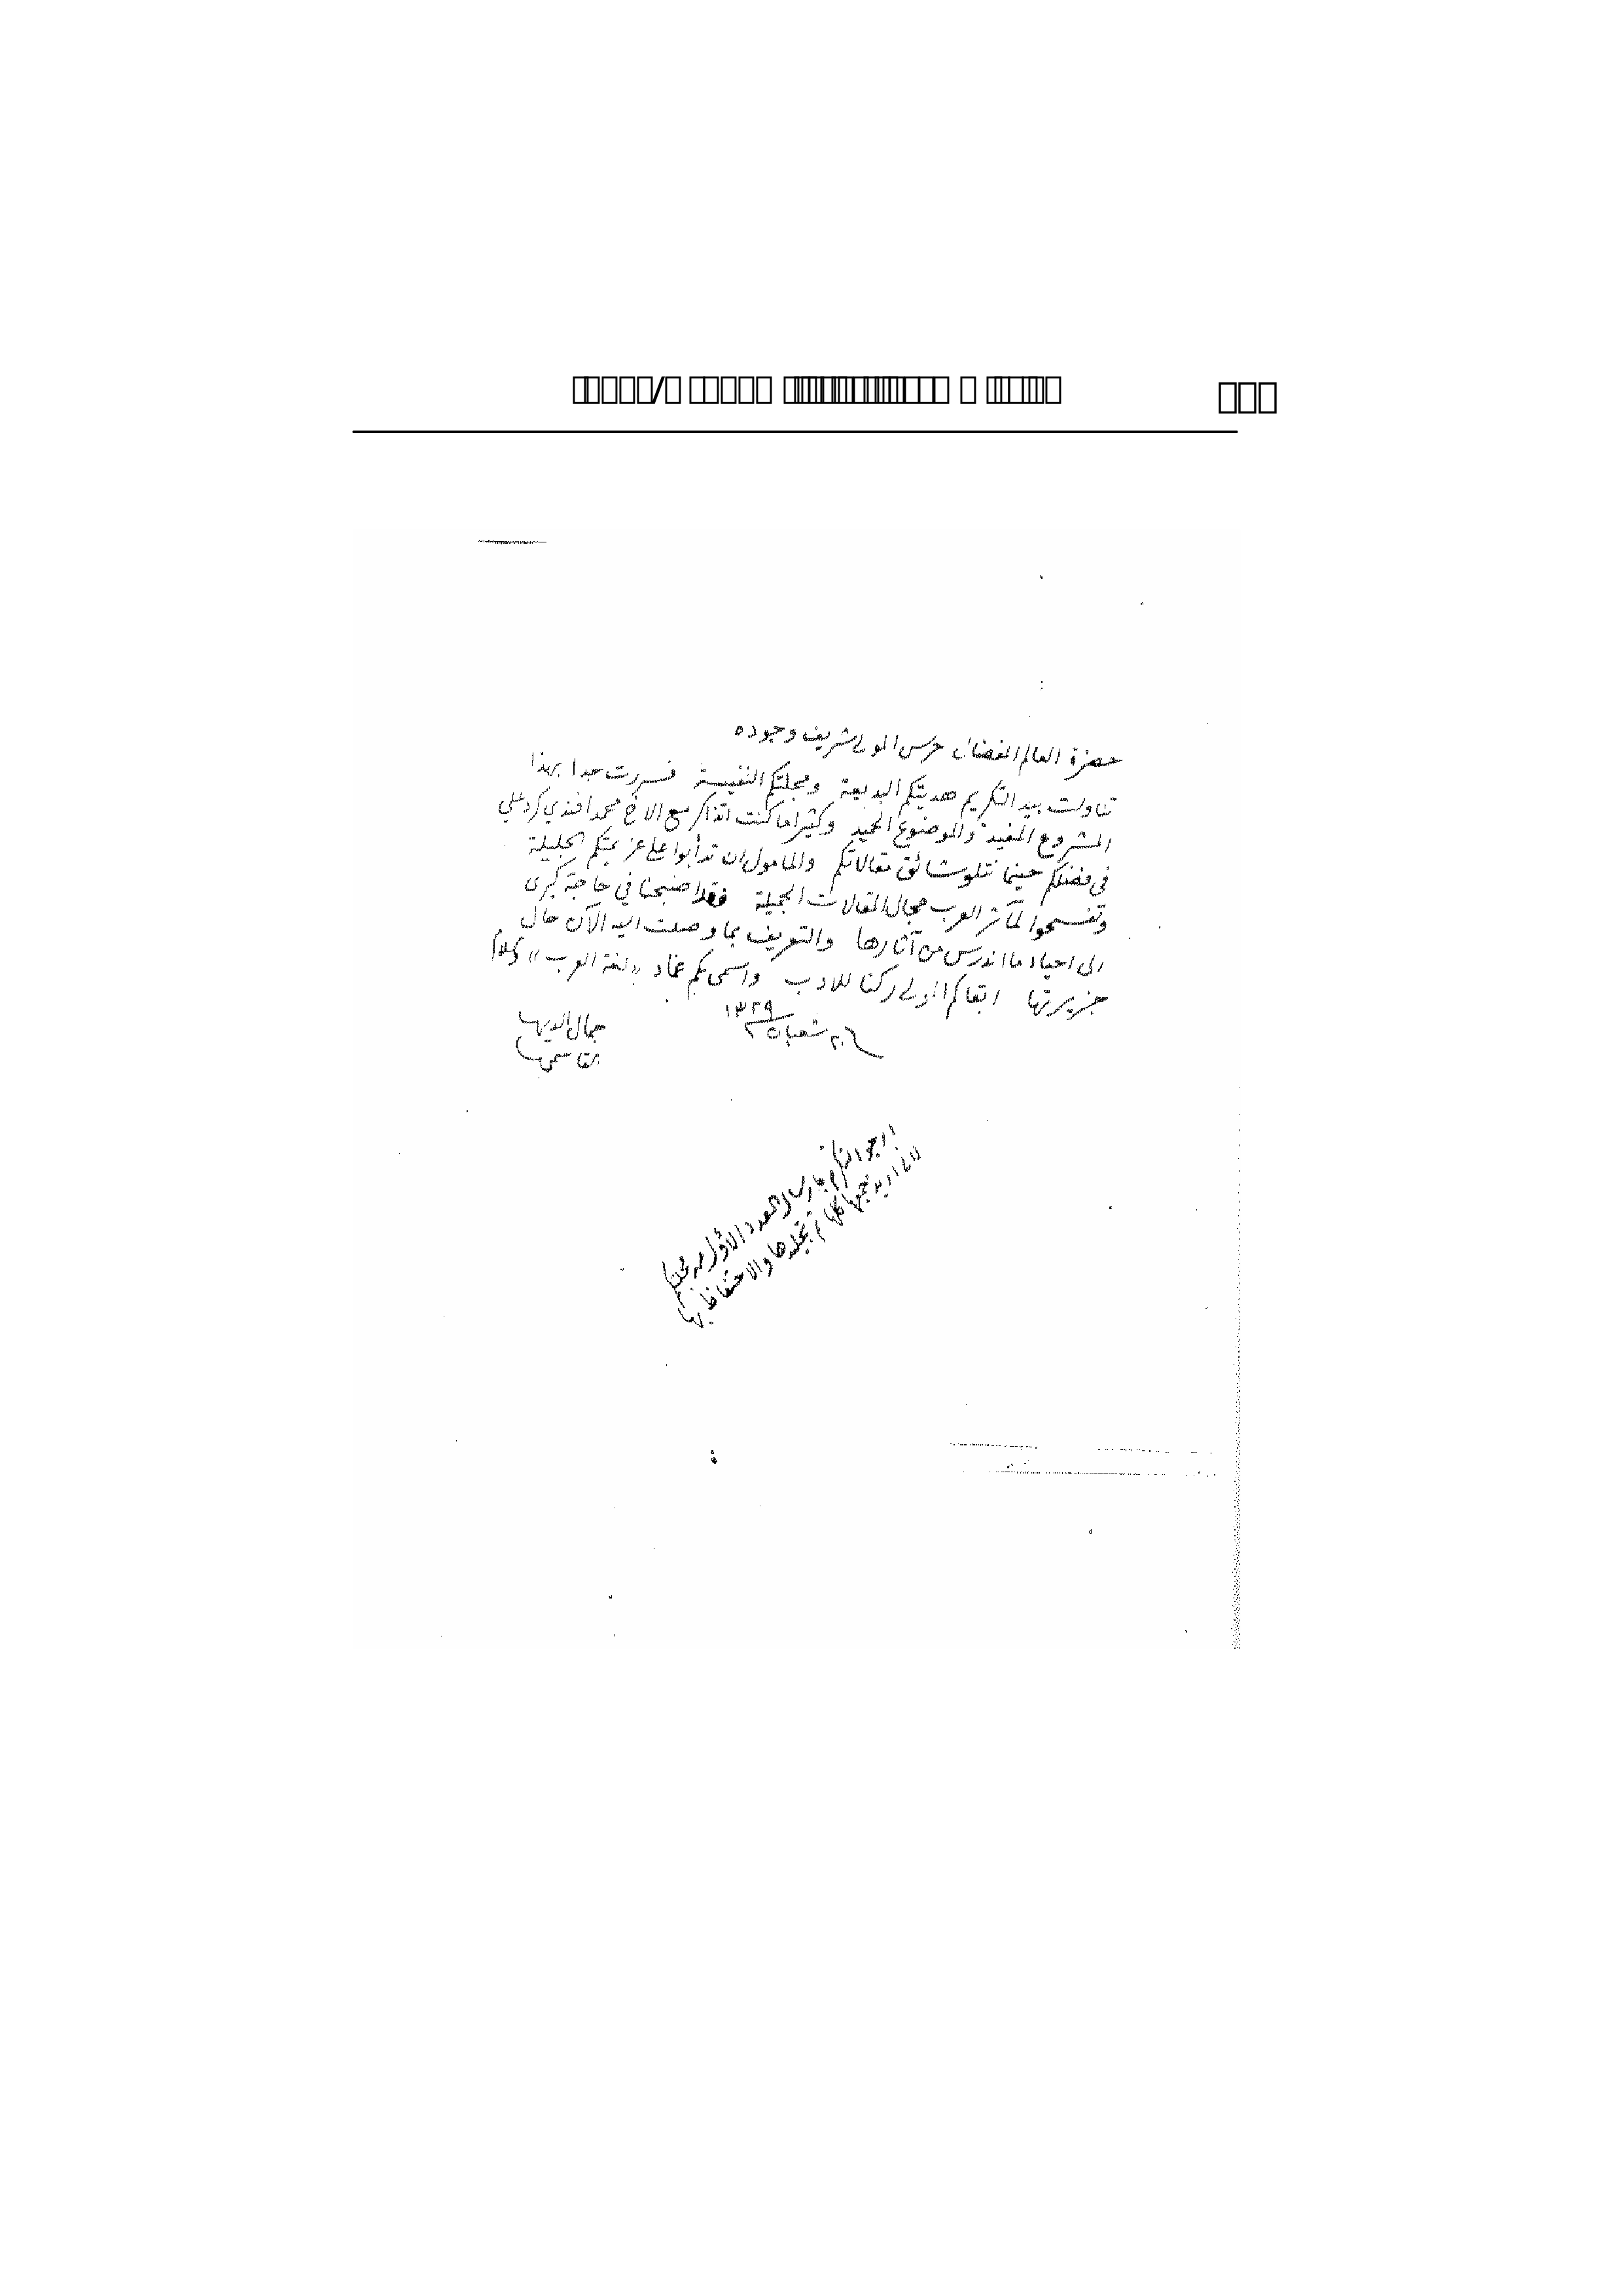 حضرة العالم المفضال حرس المولى شريف وجوده
تناولت بيد التكريم هديتكم البديعة ومجلتكم النفيسة فسررت جدا بهذا
المشروع المفيد والموضوع الحميد وكثيرا ما كنت اتذاكر مع الاخ محمد افندي كرد علي
في فضلكم حينما نتلو شائق مقالاتكم والمأمول ان تدأبوا على عزيمتكم الجليلة
وتفسحوا لمآثر العرب مجال المقالات الجميلة فقد اصبحنا في حاجة كبرى
الى احياء ما اندرس من آثارها والتعريف بما وصلت اليه الآن حال
جزيرتها ابقاكم المولى ركنا للادب واسمى بكم عماد «لغة العرب»
٢٠ شعبان ١٣٢٩
جمال الدين
القاسمي
ارجو التكرم بارسال العدد الاول من مجلتكم
لأني اريد جمعها كلها ثم تجليدها والاحتفاظ بها